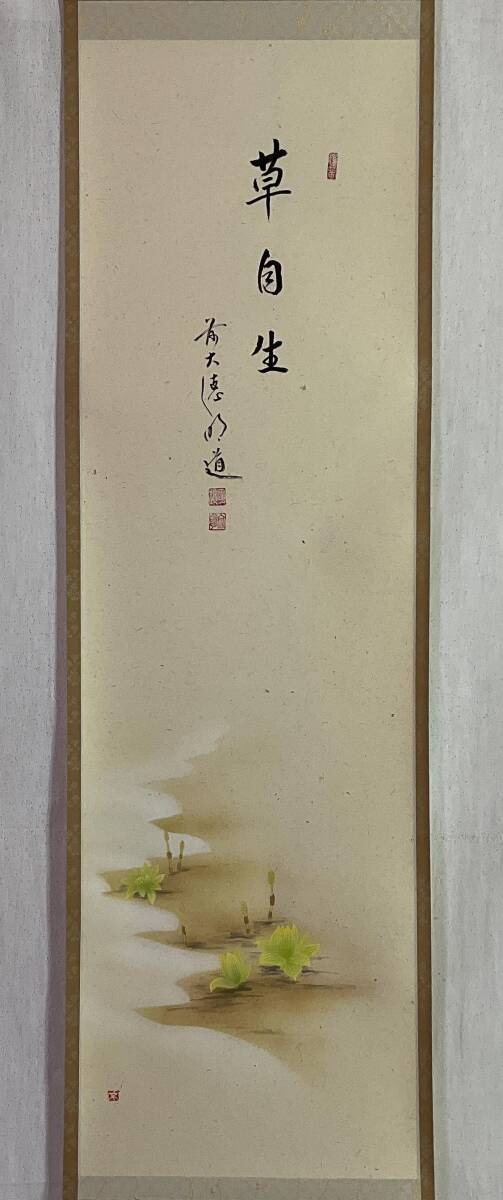 草自生
前大徳明道